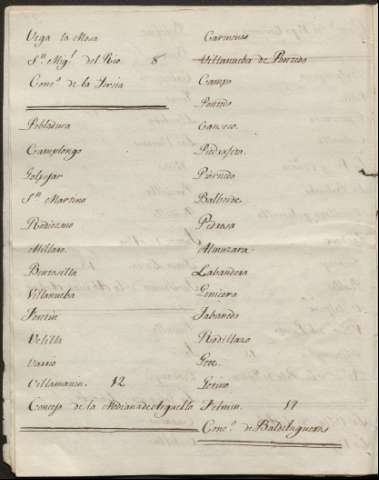 Vega la Mosa
S.n Mig.l del Rio. 8
Conc.o de la Tercia
Pobladura
Camplongo
Golpejar
S.n Martino
Rodiezmo
Millaro
Bentosilla
Villanueba
Fontun
Velilla
Barrio
Villamanin. 12
Concejo de la Mediana de Arguello
Carmenes
Villanueba de Pontedo
Campo
Pontedo
Canseco
Piedrafita
Piornedo
Balberde
Pedrosa
Almuzara
Labandera
Genicera
Tabanedo
Rodillazo
Gete
Getino
Felmin. 17
Conc.o de Baldelugueros